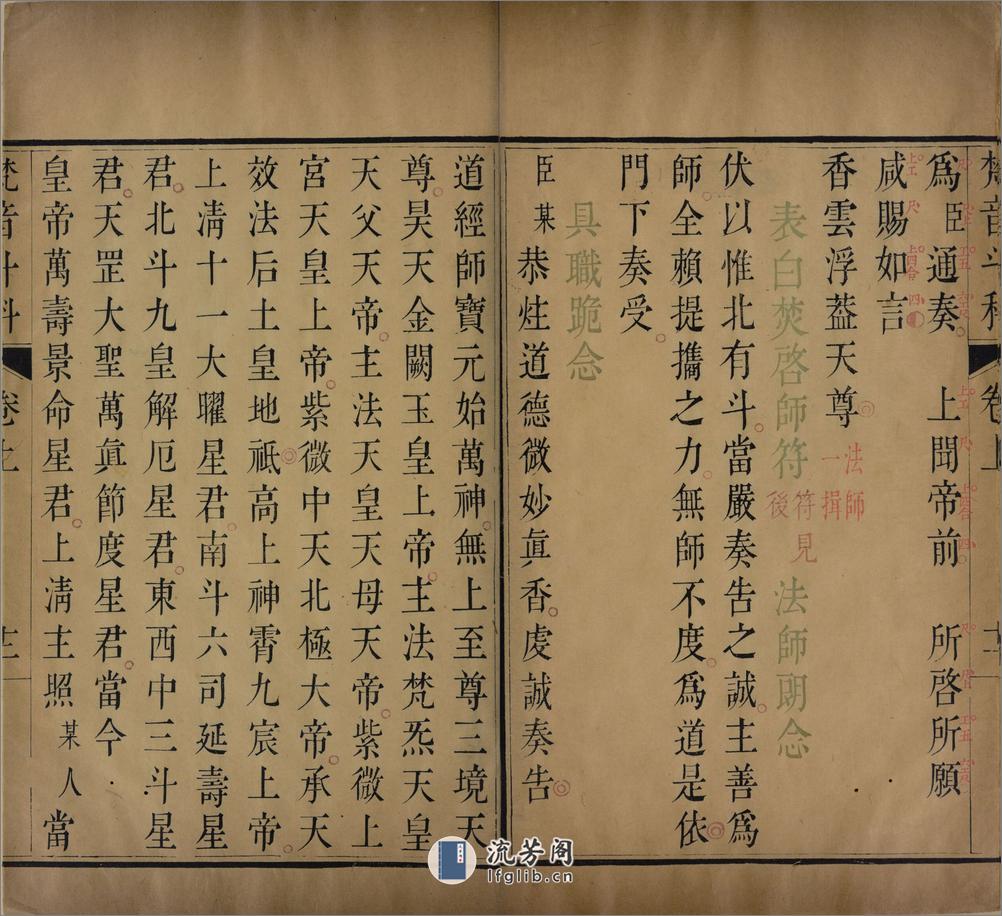 梵音斗科 卷上 十二
爲臣通奏 上聞帝前 所啓所願
咸賜如言
香雲浮蓋天尊 法師一揖
表白焚啓師符 符見後 法師朗念
伏以惟北有斗當嚴奏告之誠主善爲
師全賴提攜之力無師不度爲道是依
門下奏受
具職跪念
臣某恭炷道德微妙眞香虔誠奏告
道經師寶元始萬神無上至尊三境天
尊昊天金闕玉皇上帝主法梵炁天皇
天父天帝主法天皇天母天帝紫微上
宮天皇上帝紫微中天北極大帝承天
效法后土皇地祇高上神霄九宸上帝
上淸十一大曜星君南斗六司延壽星
君北斗九皇解厄星君東西中三斗星
君天罡大聖萬眞節度星君當今
皇帝萬壽景命星君上淸主照某人當
梵音斗科 卷上 十二
流芳阁
lfglib.cn